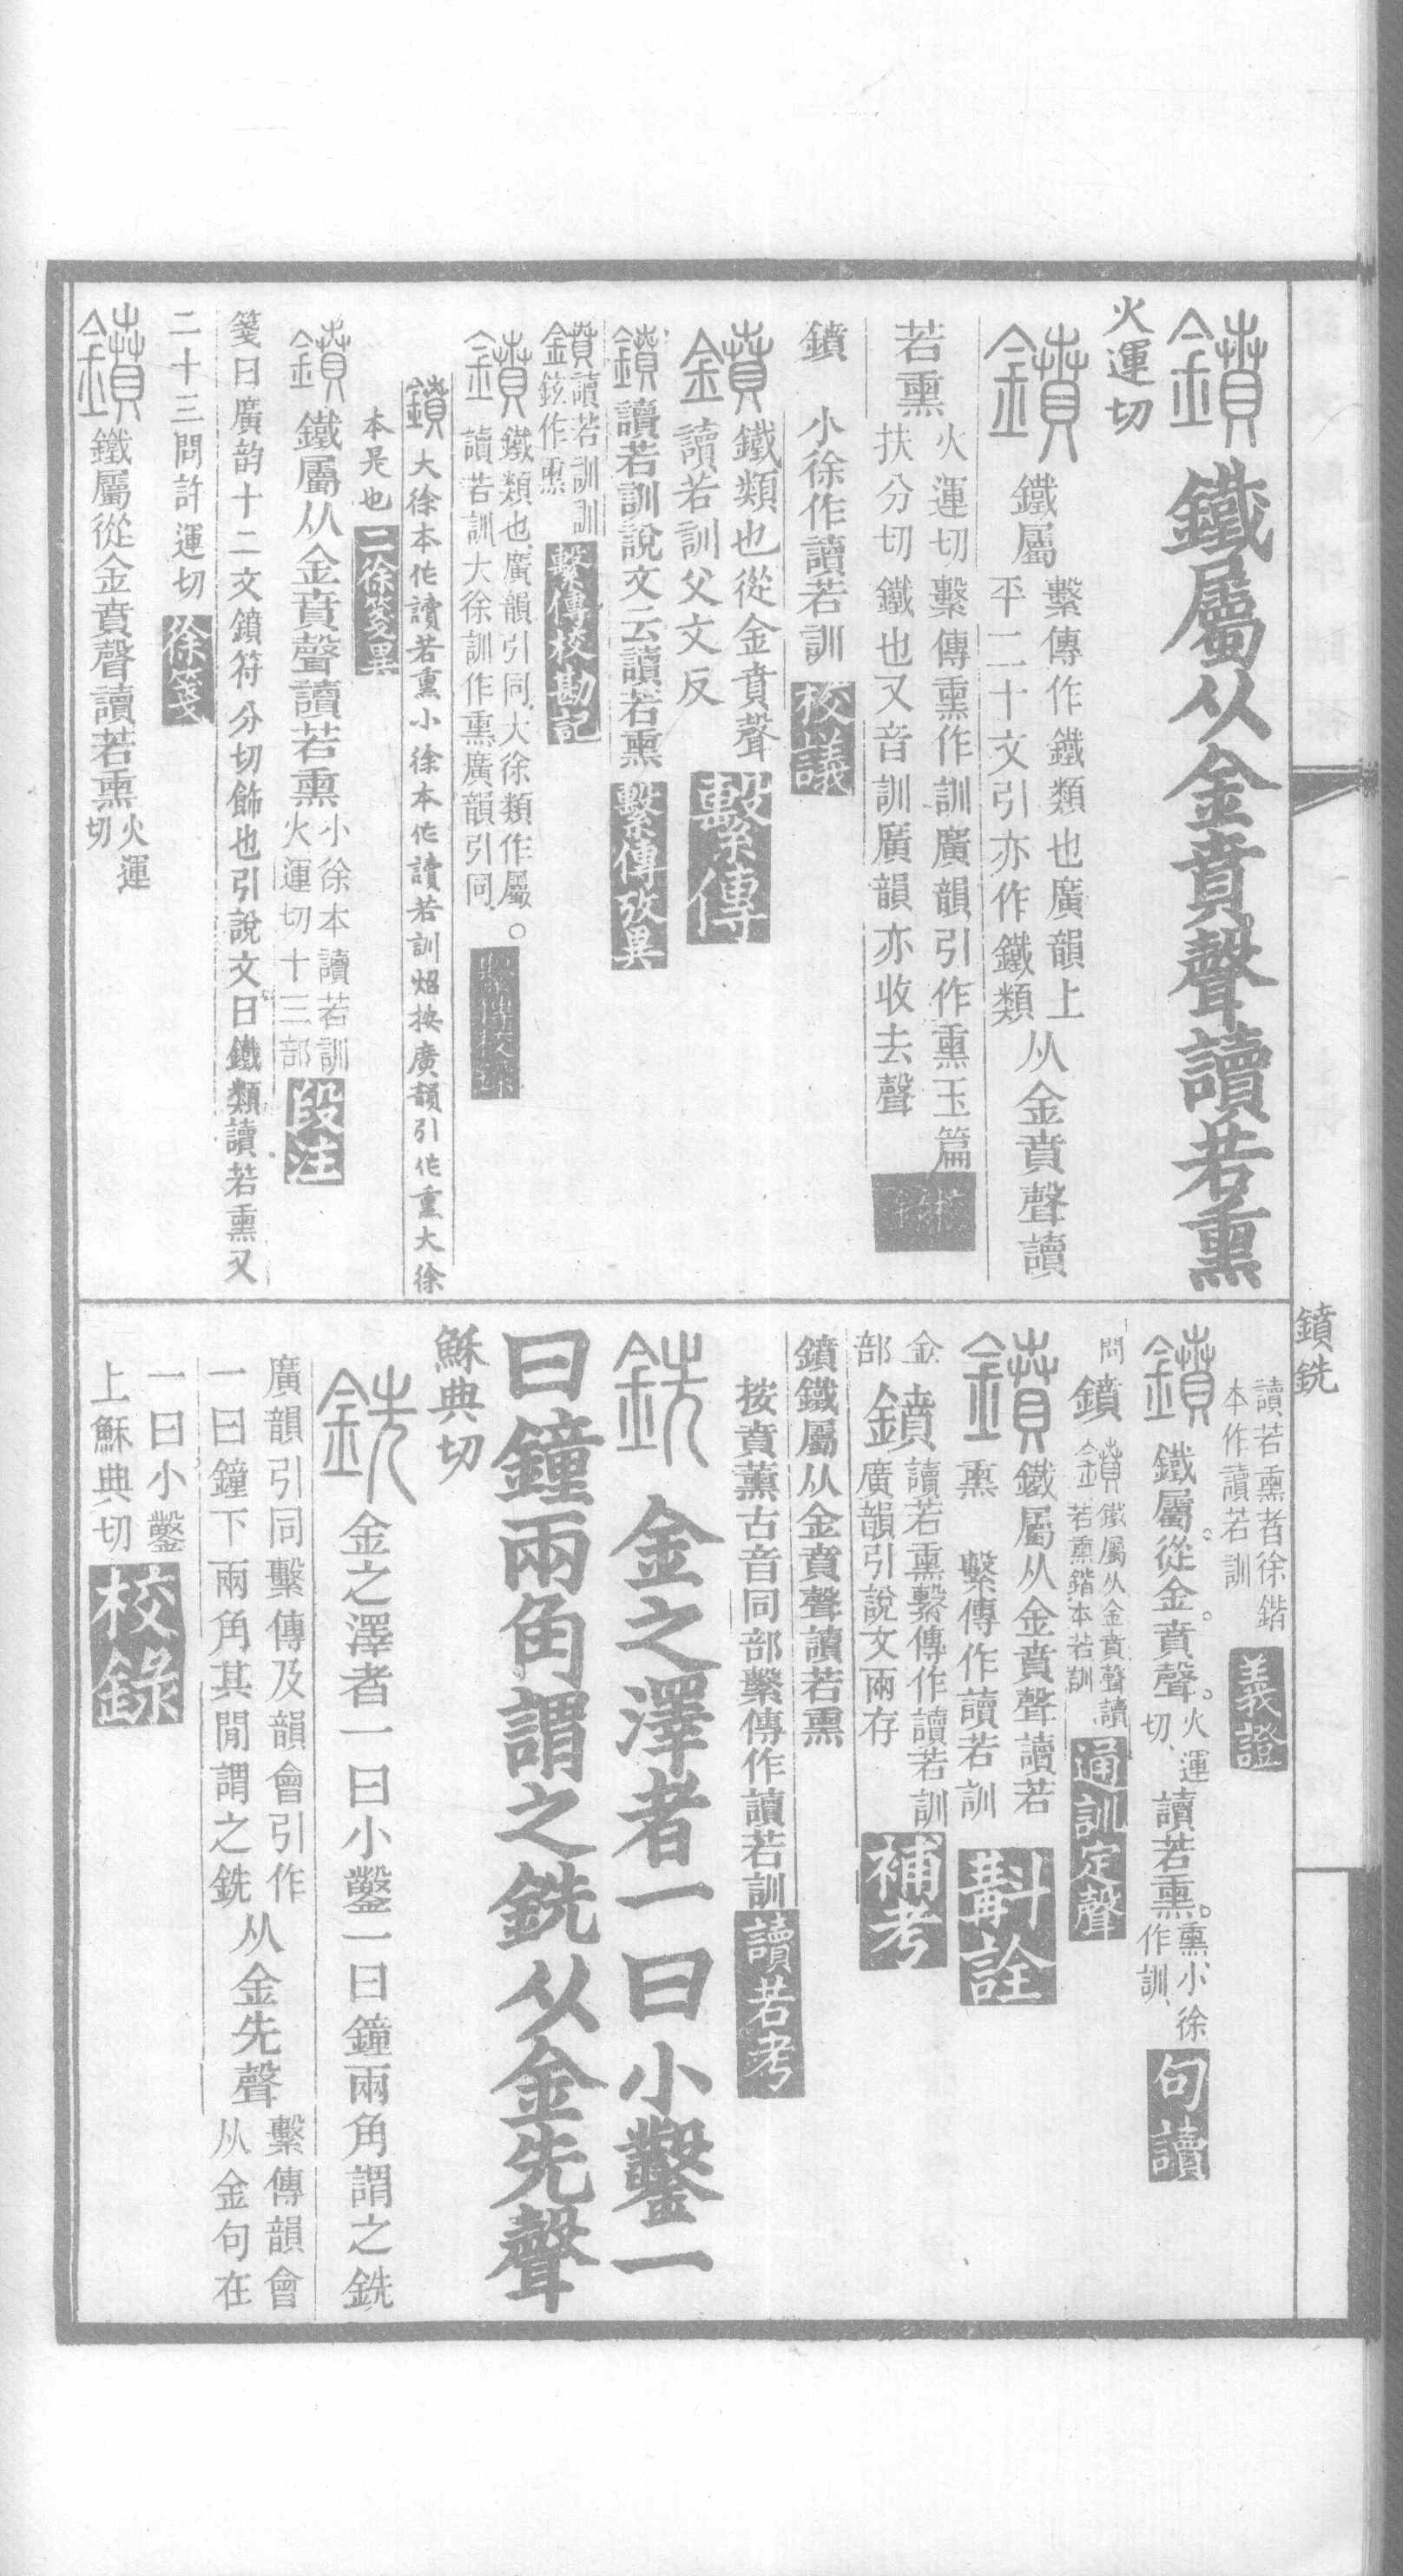 鐼鐵屬从金賁聲讀若熏
火運切
鐼鐵屬繫傳作鐵類也廣韻上
平二十文引亦作鐵類从金賁聲讀
若熏火運切繫傳熏作訓廣韻引作熏玉篇
扶分切鐵也又音訓廣韻亦收去聲
鐼 小徐作讀若訓校議
鐼鐵類也從金賁聲
讀若訓父文反繫傳
鐼讀若訓說文云讀若熏繫傳攷異
鐼讀若訓訓
鉉作熏繫傳校勘記
鐼鐵類也廣韻引同大徐類作屬。
讀若訓大徐訓作熏廣韻引同
鐼大徐本作讀若熏小徐本作讀若訓炤按廣韻引作熏大徐
本是也二徐箋異
鐼鐵屬从金賁聲讀若熏小徐本讀若訓
火運切十三部段注
箋曰廣韵十二文鐼符分切飾也引說文曰鐵類讀若熏又
二十三問許運切徐箋
鐼鐵屬從金賁聲讀若熏火運
切
鐼銑
讀若熏者徐鍇
本作讀若訓義證
鐼鐵屬。從金。賁聲。火運
切讀若熏。熏小徐
作訓句讀
問
鐼鐼鐵屬从金賁聲讀
若熏鍇本若訓通訓定聲
鐼鐵屬从金賁聲讀若
熏 繫傳作讀若訓斠詮
金
部鐼讀若熏繫傳作讀若訓
廣韻引說文兩存補考
鐼鐵屬从金賁聲讀若熏
按賁薰古音同部繫傳作讀若訓讀若考
銑金之澤者一曰小鑿一
曰鐘兩角謂之銑从金先聲
穌典切
銑金之澤者一曰小鑿一曰鐘兩角謂之銑
廣韻引同繫傳及韻會引作
一曰鐘下兩角其閒謂之銑从金先聲繫傳韻會
从金句在
一曰小鑿
上穌典切校錄